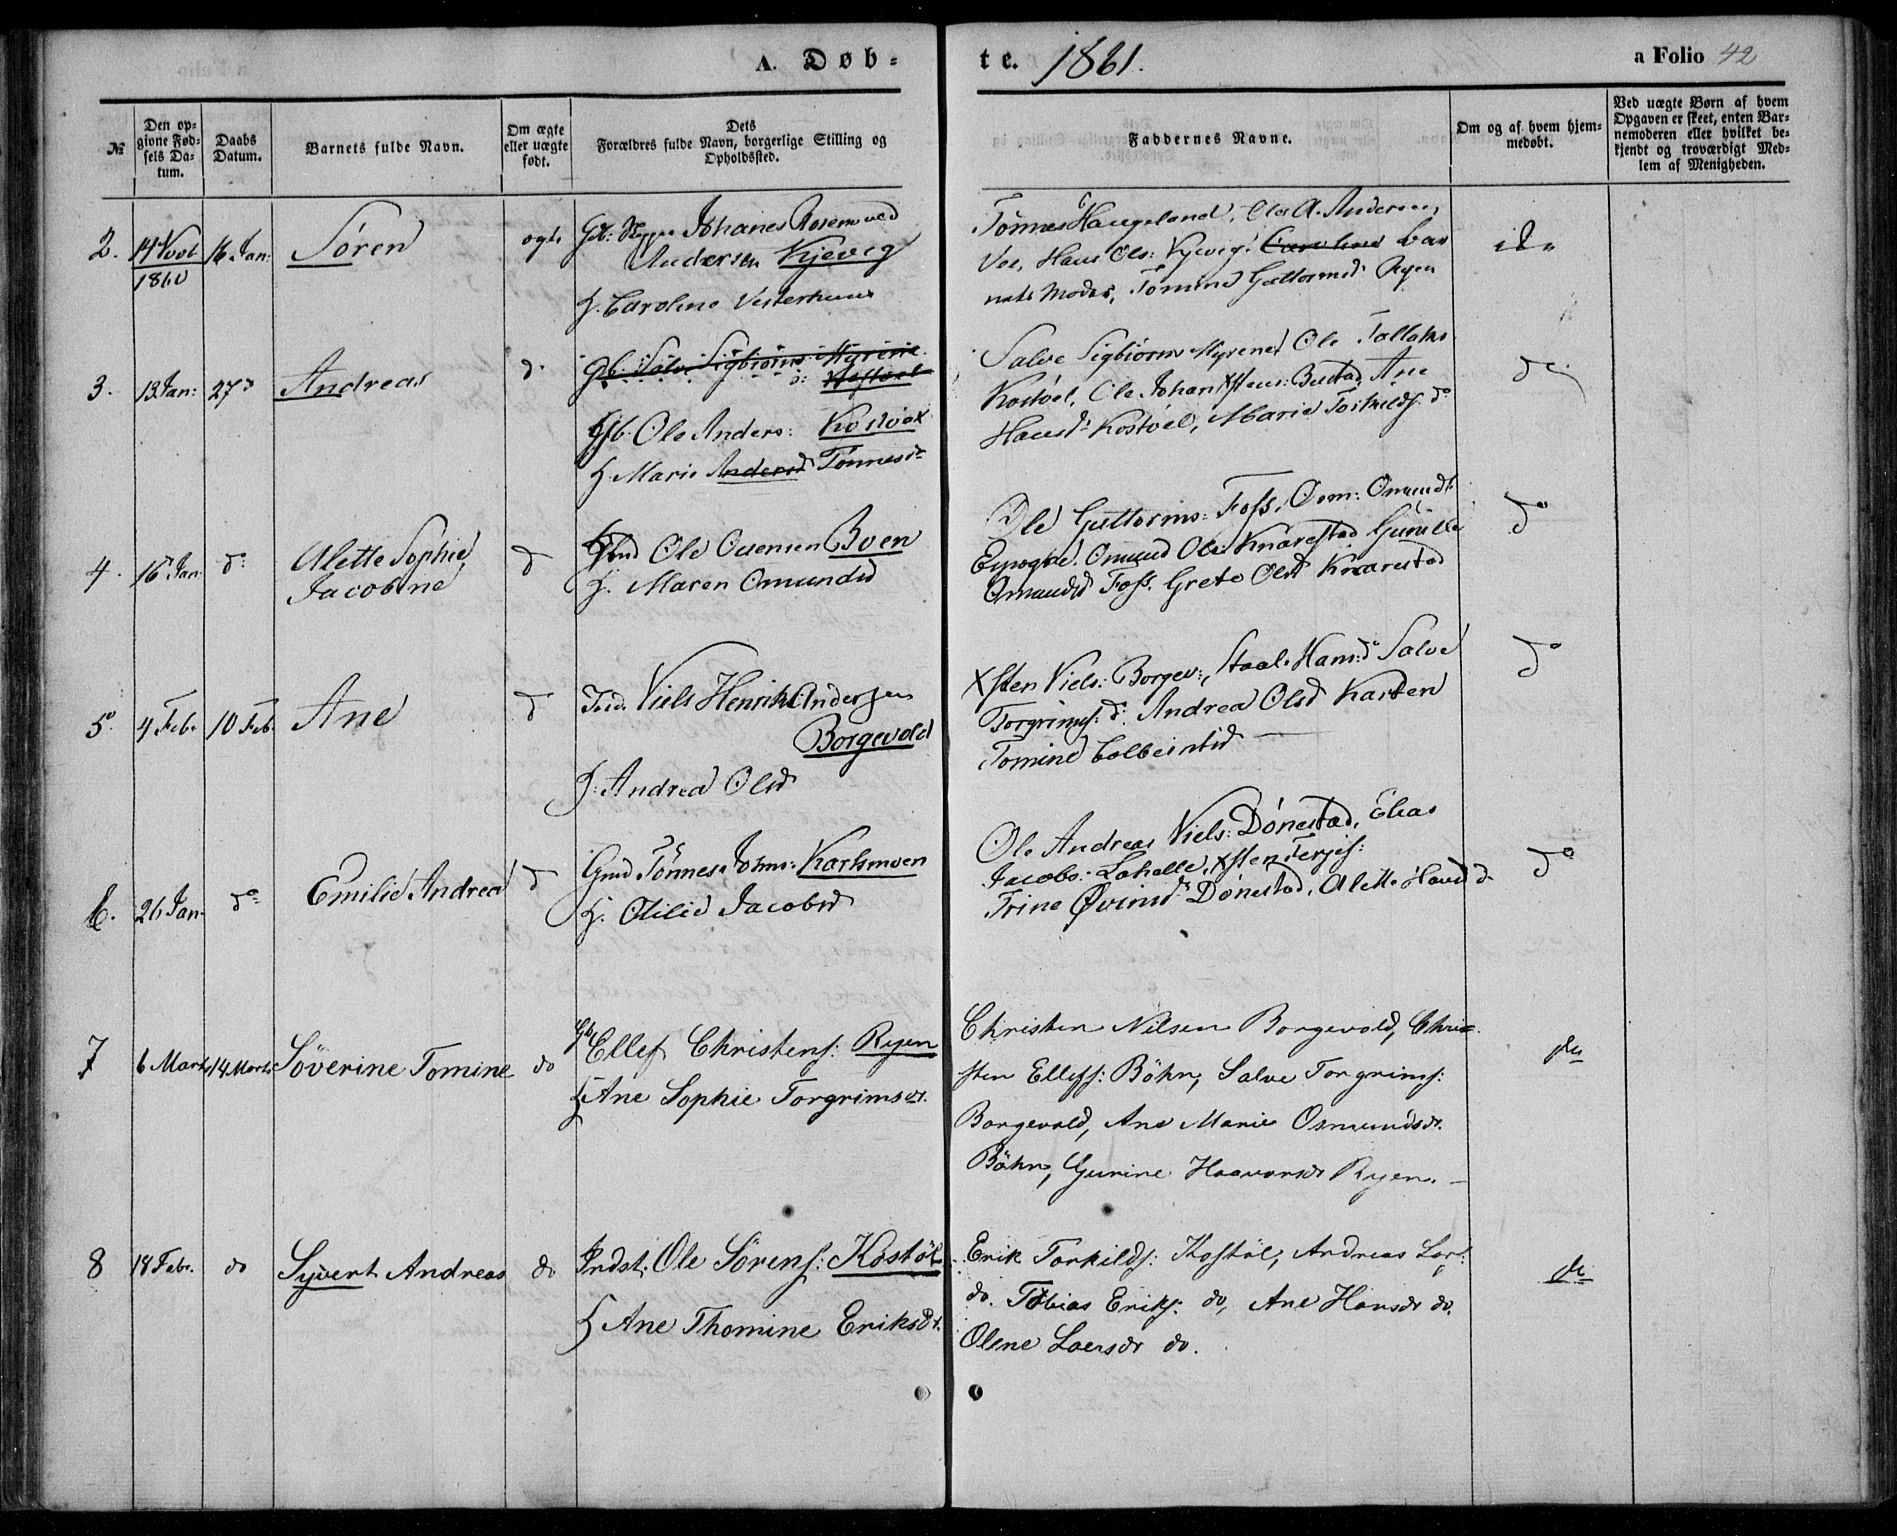 A. Døb-
te. 1861.
a Folio 42
№
Den op-
givne Fød-
sels Da-
tum.
Daabs
Datum.
Barnets fulde Navn.
Om ægte
eller uægte
født.
Dets
Forældres fulde Navn, borgerlige Stilling og
Opholdssted.
Faddernes Navne.
Om og af hvem hjem-
medøbt.
Ved uægte Børn af hvem
Opgaven er skeet, enten Bar-
nemoderen eller hvilket be-
kjendt og troværdigt Med-
lem af Menigheden.
2. 14 Novb 1860 16 Jan: Søren
Johanes Rosenvold
Andersen Kjevig
H. Caroline Vesterhuus
Tønnes Haugeland, Ole A. Andersen,
Voe, Hans Ols: Kjevig, Caroline bar
nets Moder, Tomine Guttormsd. Ryen
3. 13 Jan: 27 d Andreas d.
Gb: Salve Sigbiørns: Myrene
Gb. Ole Anders: Kostøl
H. Marie Andersd Tønnesd
Salve Sigbiørns Myrene, Ole Tallaks
Kostøel, Ole Johan Xstens: Bustad, Ane
Hansd: Kostøel, Marie Torkilds. do
do
4. 16 Jan: do: Alette Sophie
Jacobine d
Ole Ossensen Boen
H. Maren Omundsd
Ole Guttorms: Foss, Osm: Omunds
Omund Ols: Knarestad, Gunille
Omundsd Foss. Grete Olsd Knarestad
do
5. 4 Feb. 10 Feb. Ane d
Ind. Niels Henrik Andersen
Borgevold
H. Andrea Olsd
Xsten Niels: Borgev:, Staal. Hansd. Salve
Torgrims: d: Andrea Olsd Karsten
Tomine
do
6. 26 Jan. do Emilie Andrea d
Gmd Tønnes Johns: Karlsmoen
H. Otilie Jacobsd
Ole Andreas Niels: Dønestad, Elias
Jacobs: Lohelle, Xsten Terjes:
Trine Øvinsd: Dønestad, Alette Havsd d
do
7 6 Marts 14 Marts Søverine Tomine do
Gb Ellef Christens: Ryen
H Ane Sophie Torgrimsdr.
Christen Nilsen Borgevold, Chri-
sten Ellefs: Böhn, Salve Torgrims:
Borgevold, Ane Marie Osmundsdr.
Böhn, Gurine Haavorsdr Ryen.
do
8 18 Febr. do Syvert Andreas do
Indst. Ole Sörens: Kostøl
H Ane Thomine Eriksdr.
Erik Torkilds: Kostøl, Andreas Lars:
do. Tobias Eriks: do, Ane Hansdr do.
Olene Laersdr do.
do